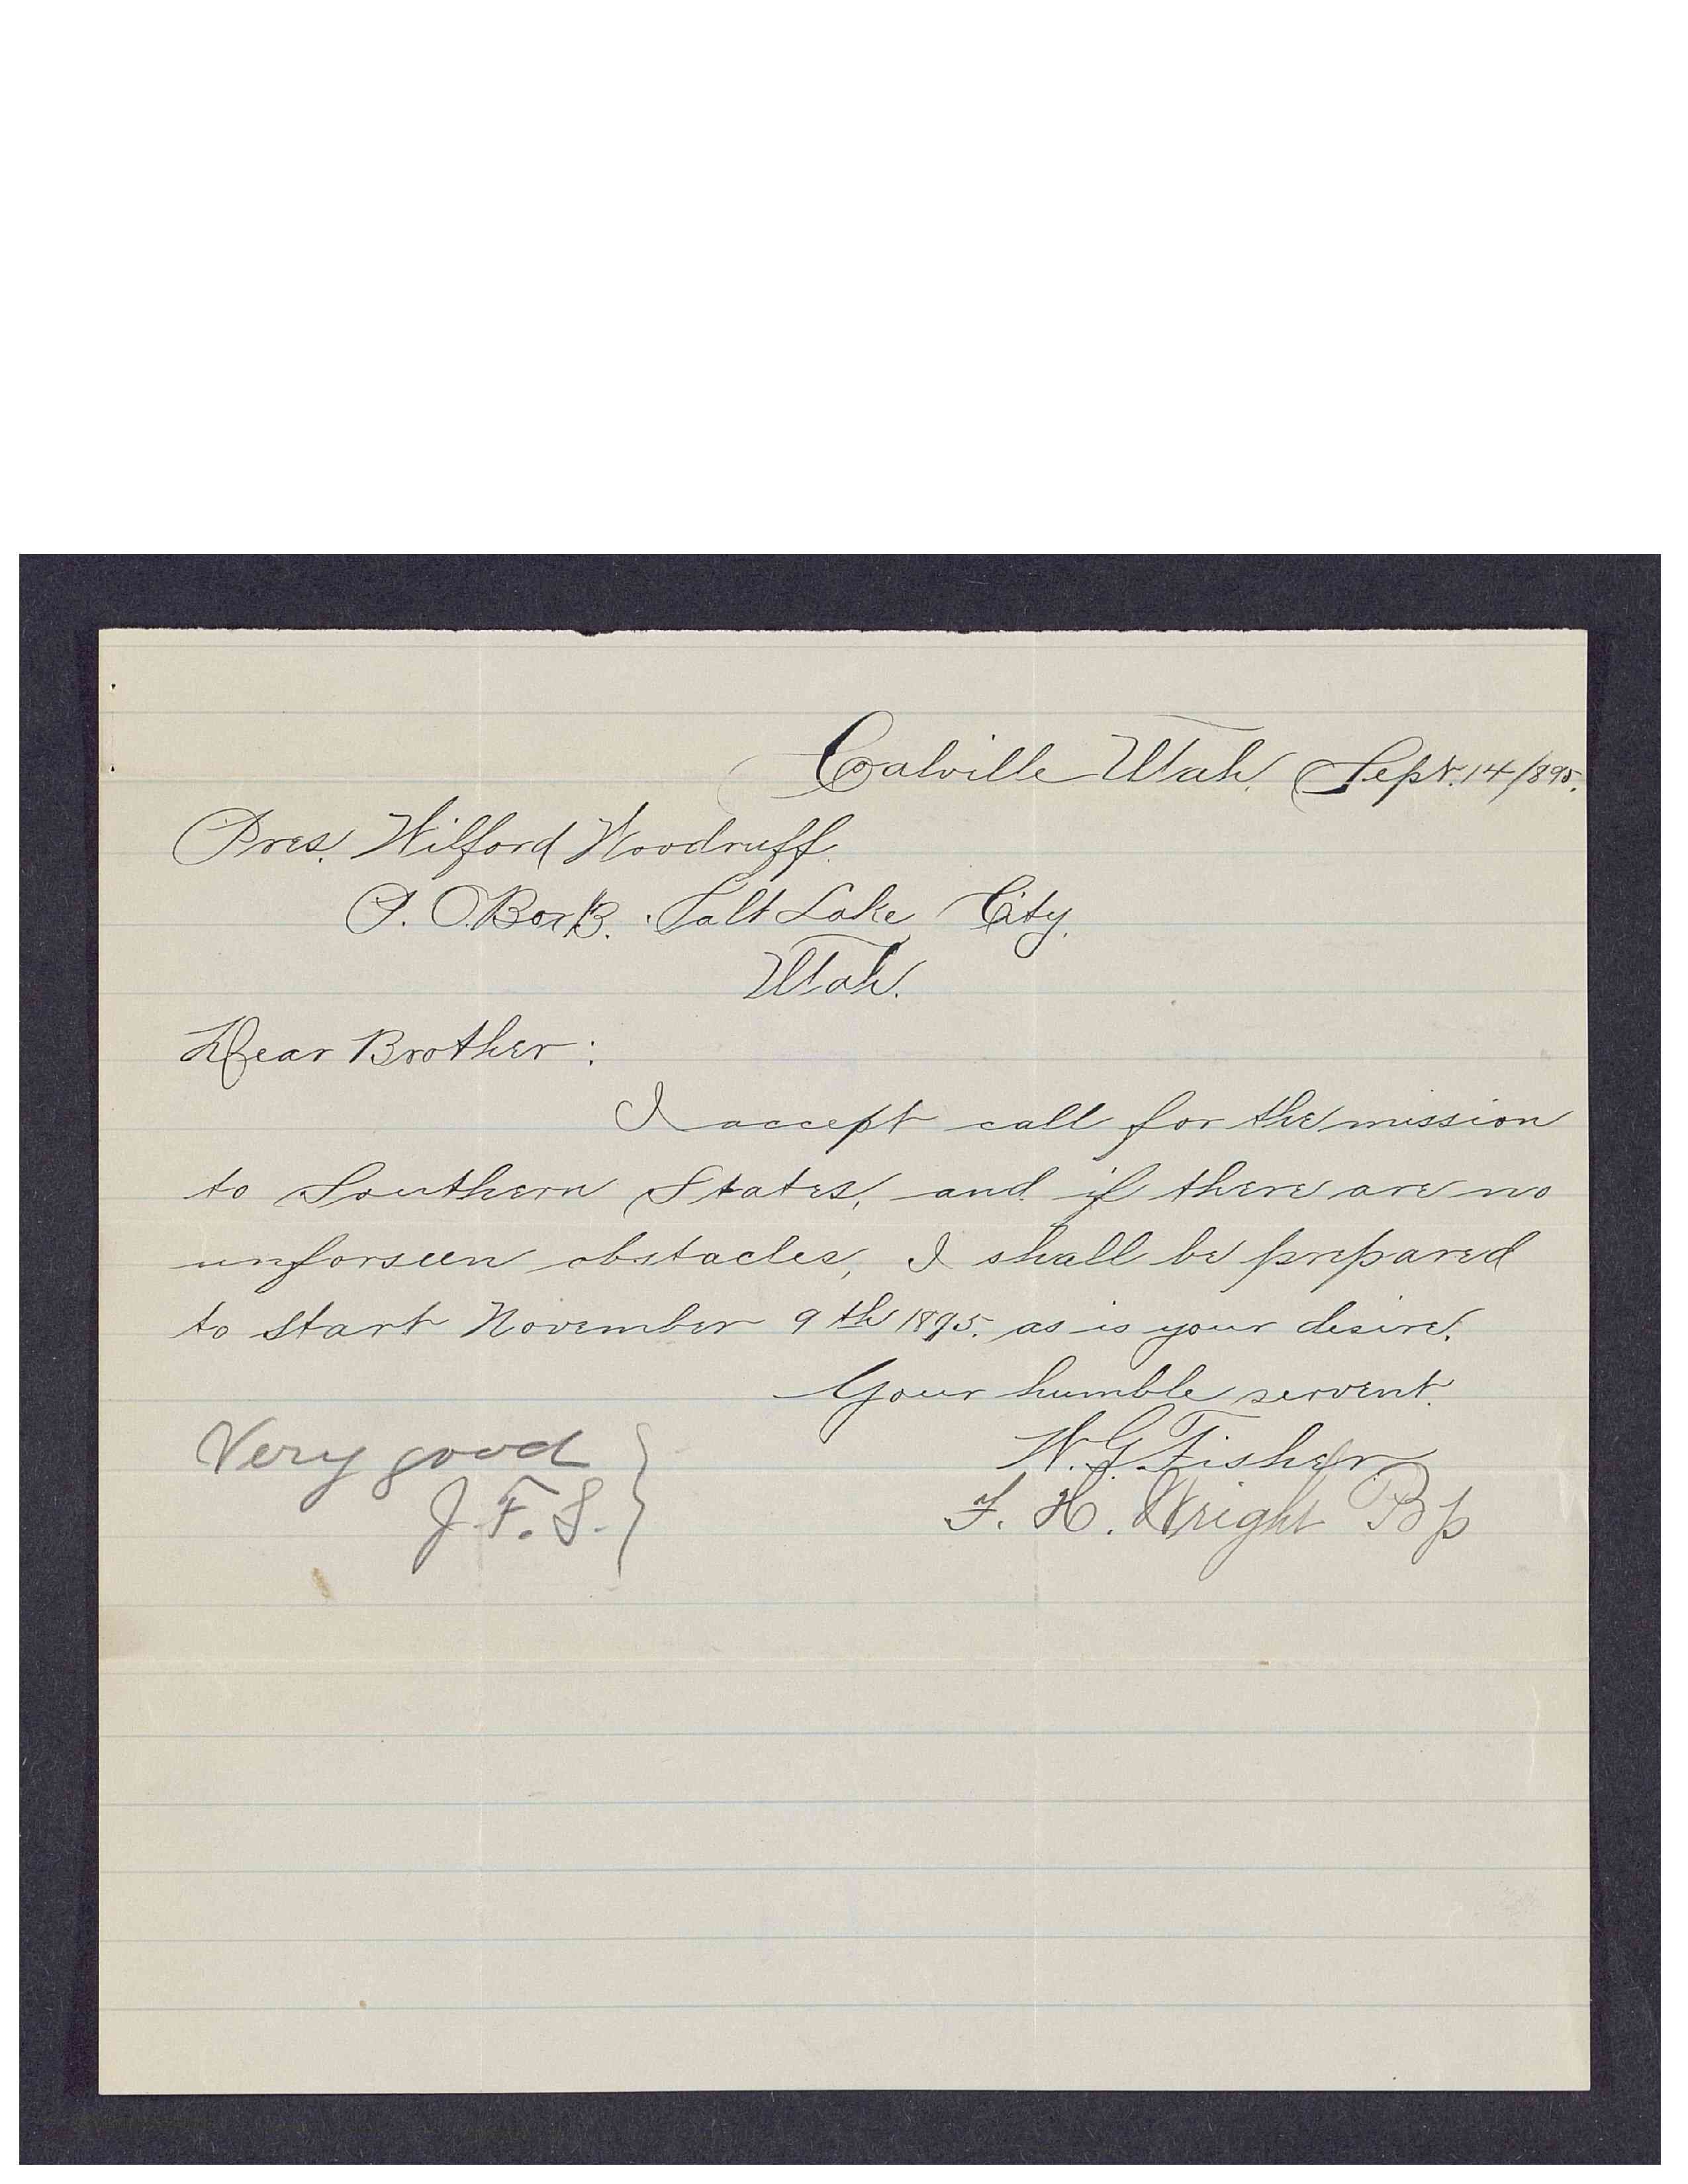 Coalville Utah, Sept. 14/1895.
Pres. Wilford Woodruff.
P. O. Box B. Salt Lake City.
Utah.
Dear Brother:
I accept call for the mission
to Southern States, and if there are no
unforseen obstacles, I shall be prepared
to start November 9th 1895. as is your desire.
Your humble servent.
W. G. Fisher
F. H. Wright Bp
Very good
J. F. S.